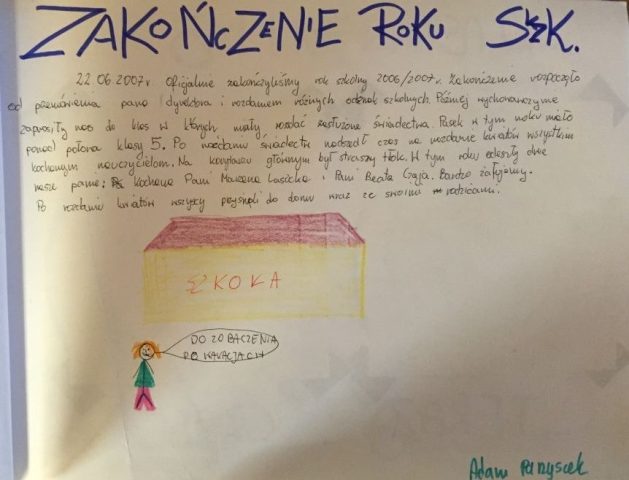 ZAKOŃCZENIE ROKU SZK.
22.06.2007r Oficjalnie zakończyliśmy rok szkolny 2006/2007r. Zakończenie rozpoczęło
od przemówienia pana dyrektora i rozdaniem różnych odznak szkolnych. Później wychowawczynie
zaprosiły nas do klas w których miały rozdać zasłużone świadectwa. Pasek w tym roku miało
ponad połowa klasy 5. Po rozdaniu świadectw nadszedł czas na rozdanie kwiatów wszystkim
kochanym nauczycielom. Na korytarzu głównym był straszny tłok. W tym roku odeszły dwie
nasze panie: Kochana Pani Marzena i Pani Beata Gaja. Bardzo żałujemy.
Po rozdaniu kwiatów wszyscy poszli do domu wraz ze swoimi rodzicami.
SZKOŁA
DO ZOBACZENIA
PO WAKACJACH
Adam